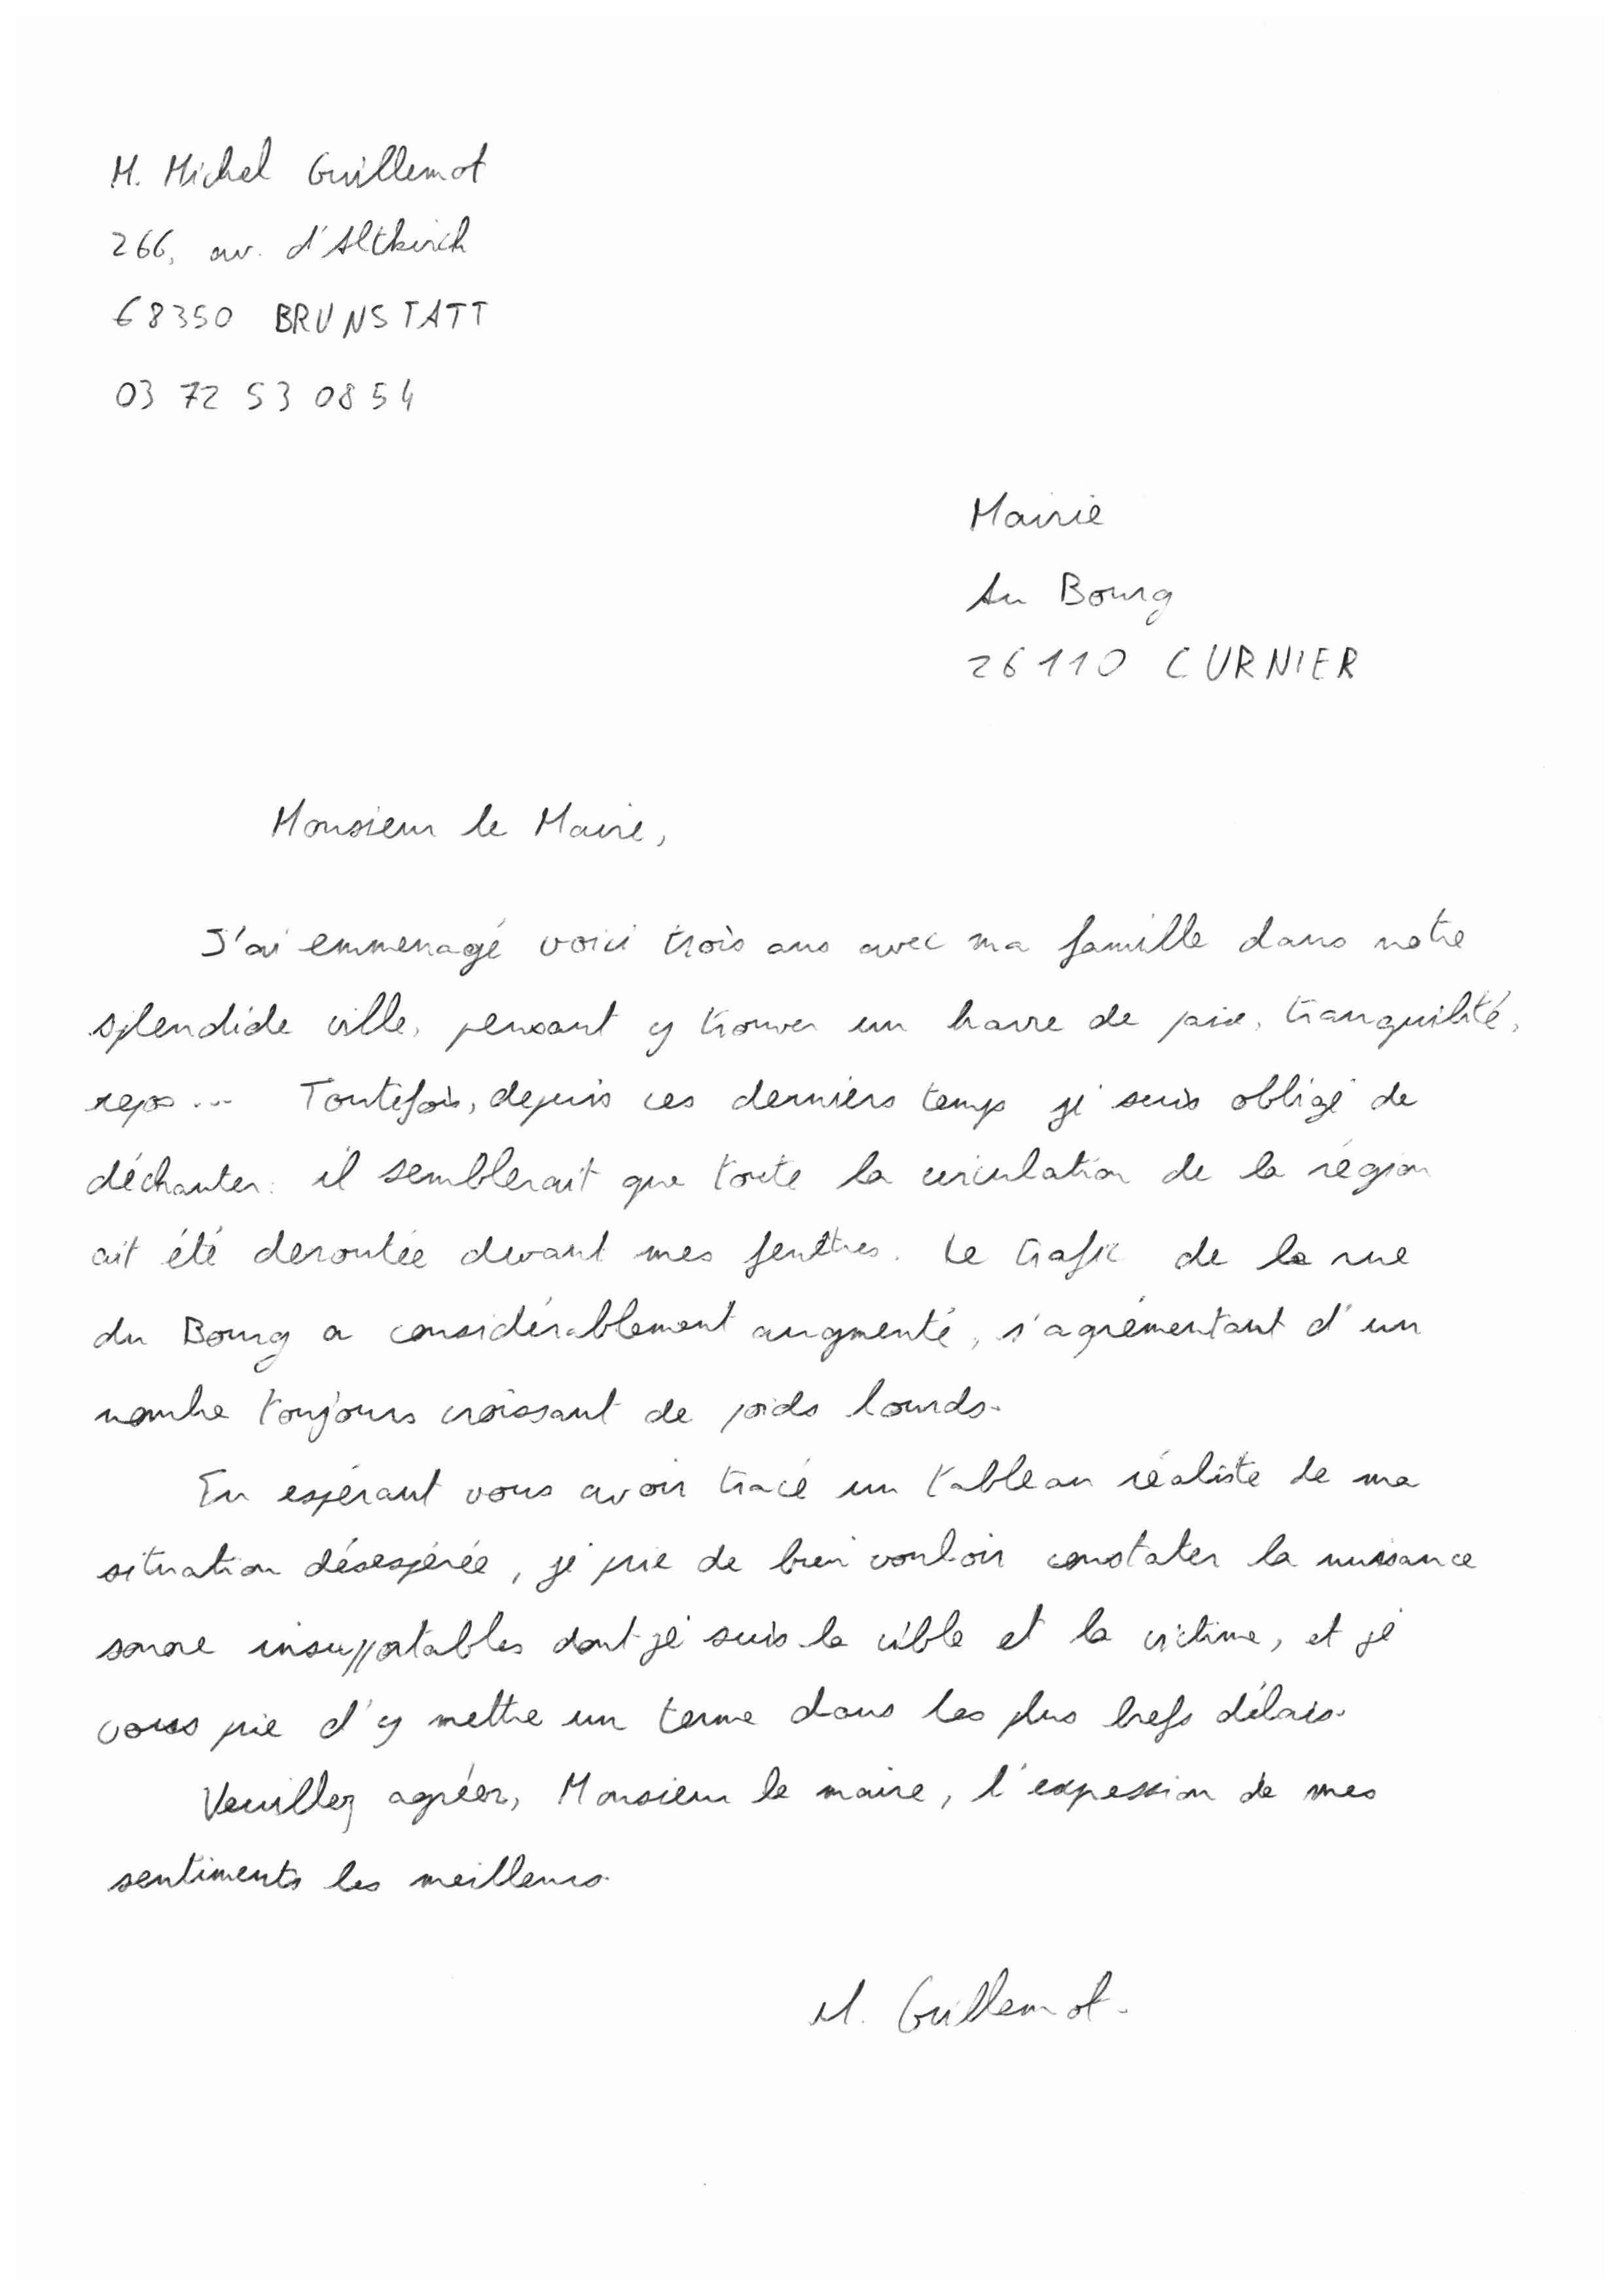 M. Michel Guillemot
266, av. d'Altkirch
68350 BRUNSTATT
03 72 53 08 54
Mairie
Au Bourg
26110 CURNIER
Monsieur le Maire,
J'ai emmenagé voici trois ans avec ma famille dans notre
splendide ville, pensant y trouver un havre de paix, tranquilité,
repos... Toutefois, depuis ces derniers temps je suis obligé de
déchanter: il semblerait que toute la circulation de la région
ait été deroutée devant mes fenêtres. Le trafic de la rue
du Bourg a considérablement augmenté, s'agrémentant d'un
nombre toujours croissant de poids lourds.
En espérant vous avoir tracé un tableau réaliste de ma
situation désespérée, je prie de bien vouloir constater la nuisance
sonore insupportables dont je suis la cible et la victime, et je
vous prie d'y mettre un terme dans les plus brefs délais.
Veuillez agréer, Monsieur le maire, l'expession de mes
sentiments les meilleurs.
M. Guillemot.